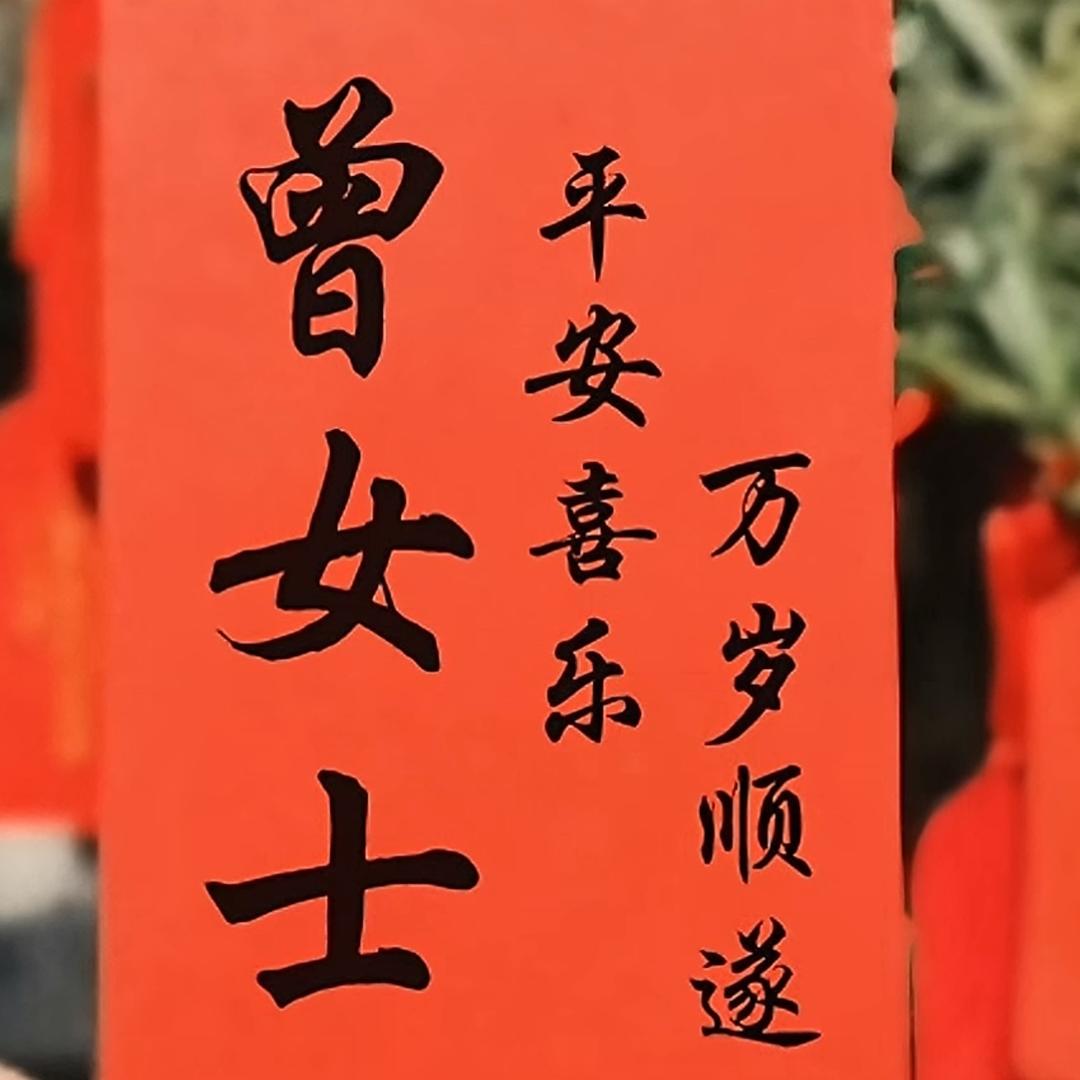 曾女士
平安喜乐
万岁顺遂